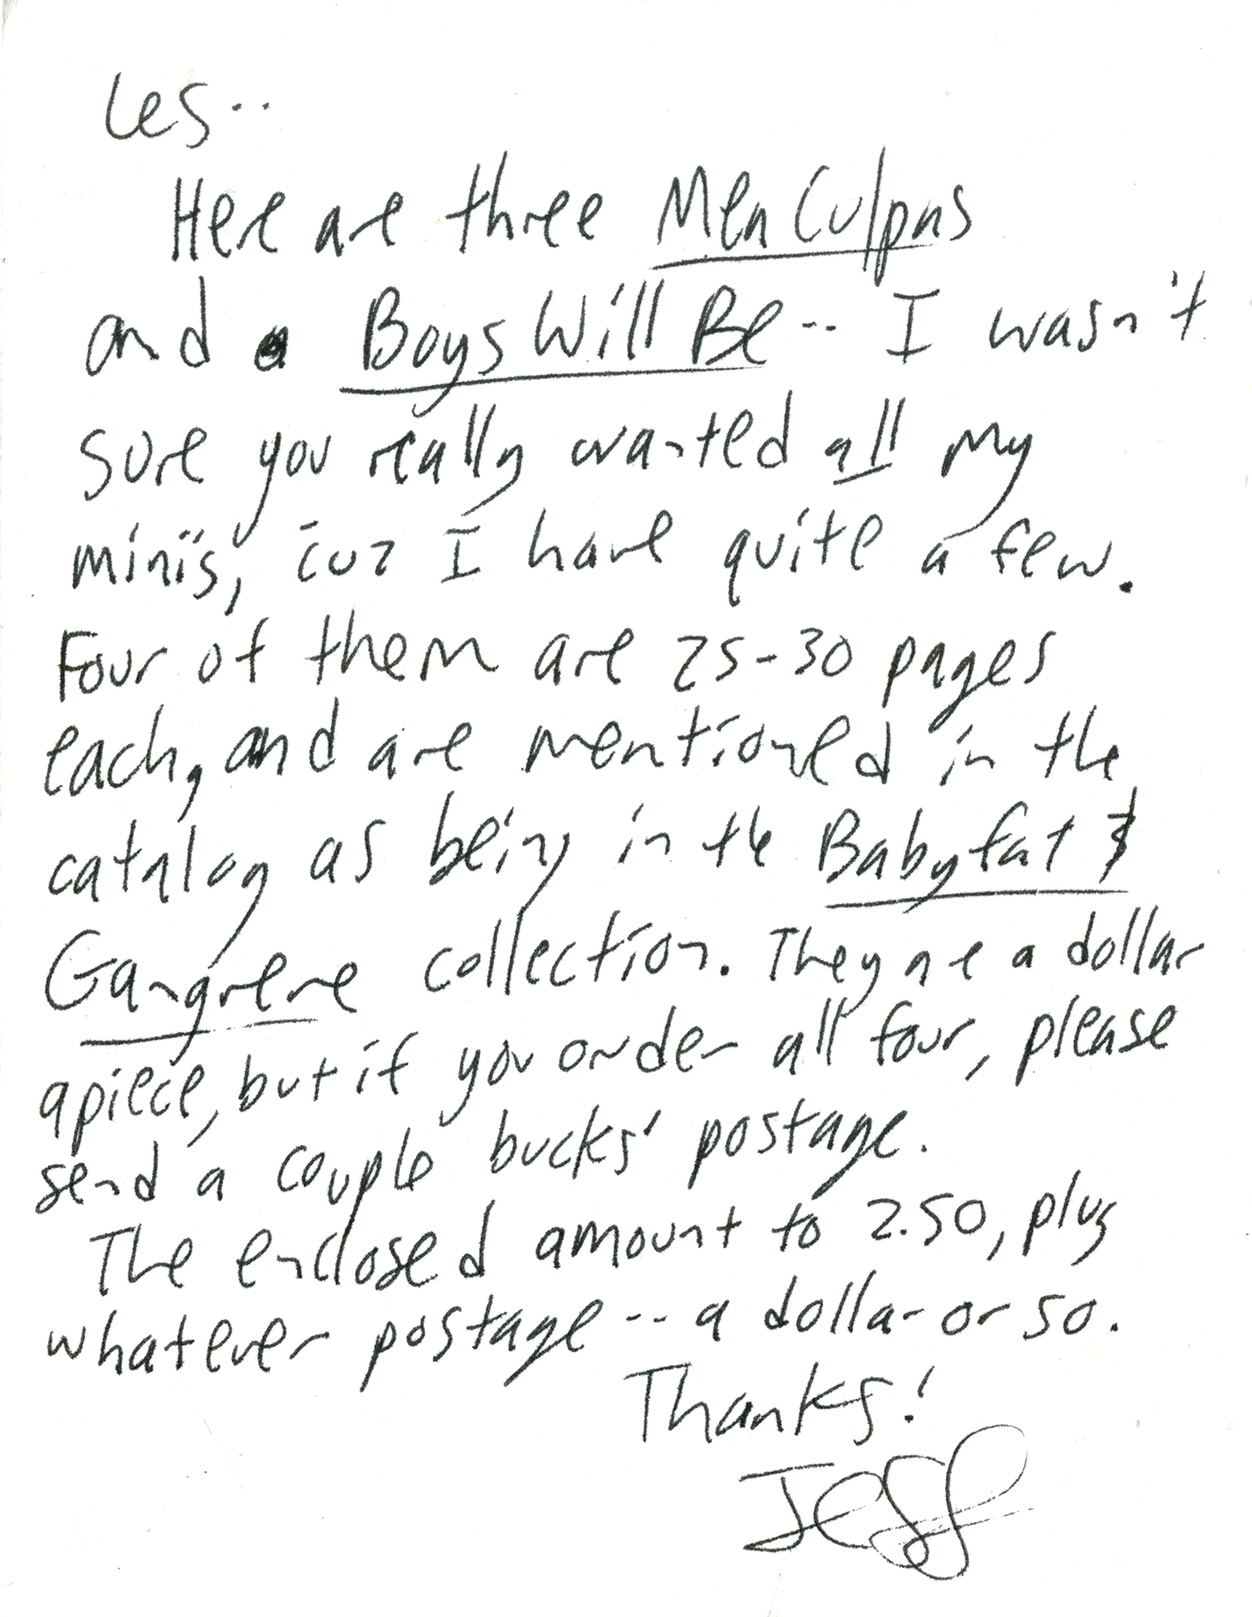 Les--
Here are three Mea Culpas
and a Boys Will Be -- I wasn't
sure you really wanted all my
minis, cuz I have quite a few.
Four of them are 25-30 pages
each, and are mentioned in the
catalog as being in the Babyfat &
Gangrene collection. They are a dollar
apiece, but if you order all four, please
send a couple bucks' postage.
The enclosed amount to 2.50, plus
whatever postage -- a dollar or so.
Thanks!
Jeff